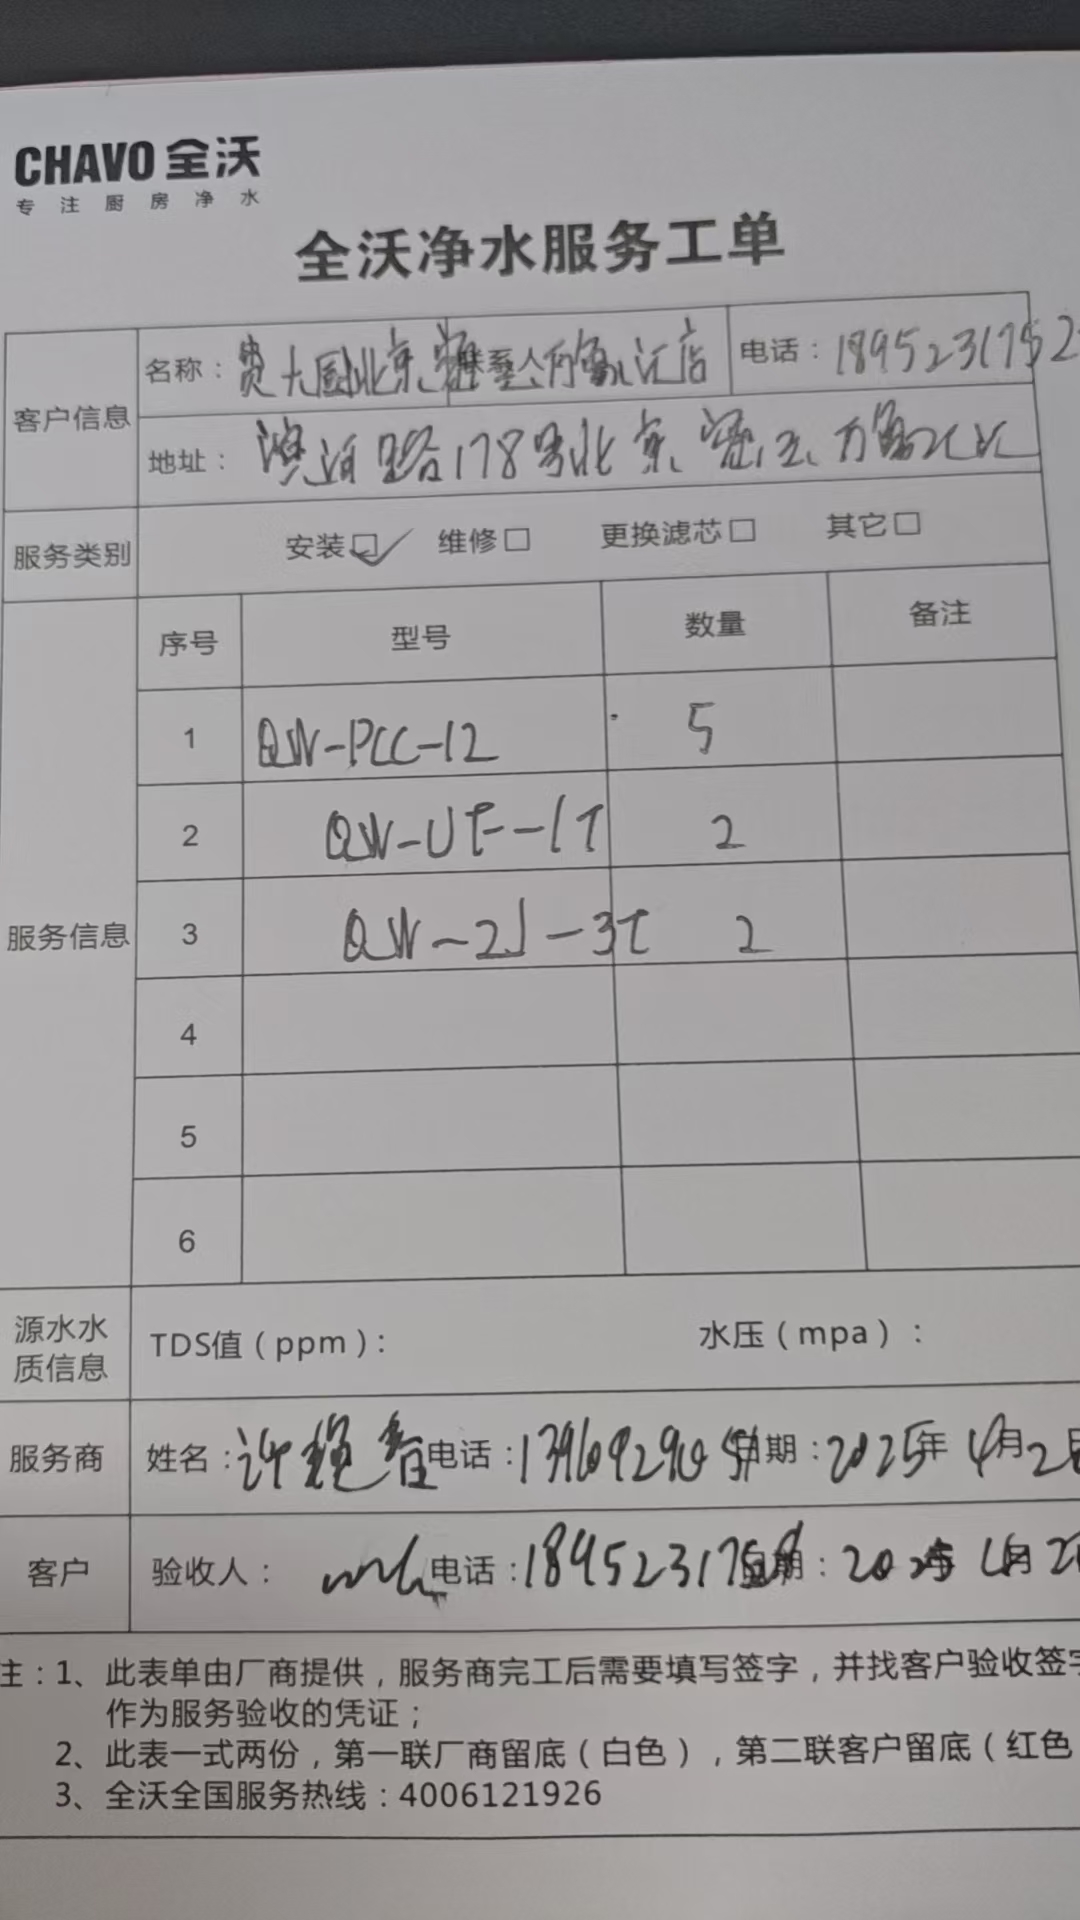 CHAVO 全沃
专注厨房净水
全沃净水服务工单
客户信息
名称：费大厨北京 联系人 汇店 电话：1895231752
地址： 路178号北京 万 汇
服务类别 安装☑ 维修□ 更换滤芯□ 其它□
服务信息
序号 型号 数量 备注
1 QW-PCC-12 5
2 QW-UF-1T 2
3 QW-2J-3T 2
4
5
6
源水水质信息 TDS值（ppm）： 水压（mpa）：
服务商 姓名：许 电话： 日期：2025年4月2
客户 验收人： 电话： 日期：2025年4月2
注：1、此表单由厂商提供，服务商完工后需要填写签字，并找客户验收签字
作为服务验收的凭证；
2、此表一式两份，第一联厂商留底（白色），第二联客户留底（红色
3、全沃全国服务热线：4006121926